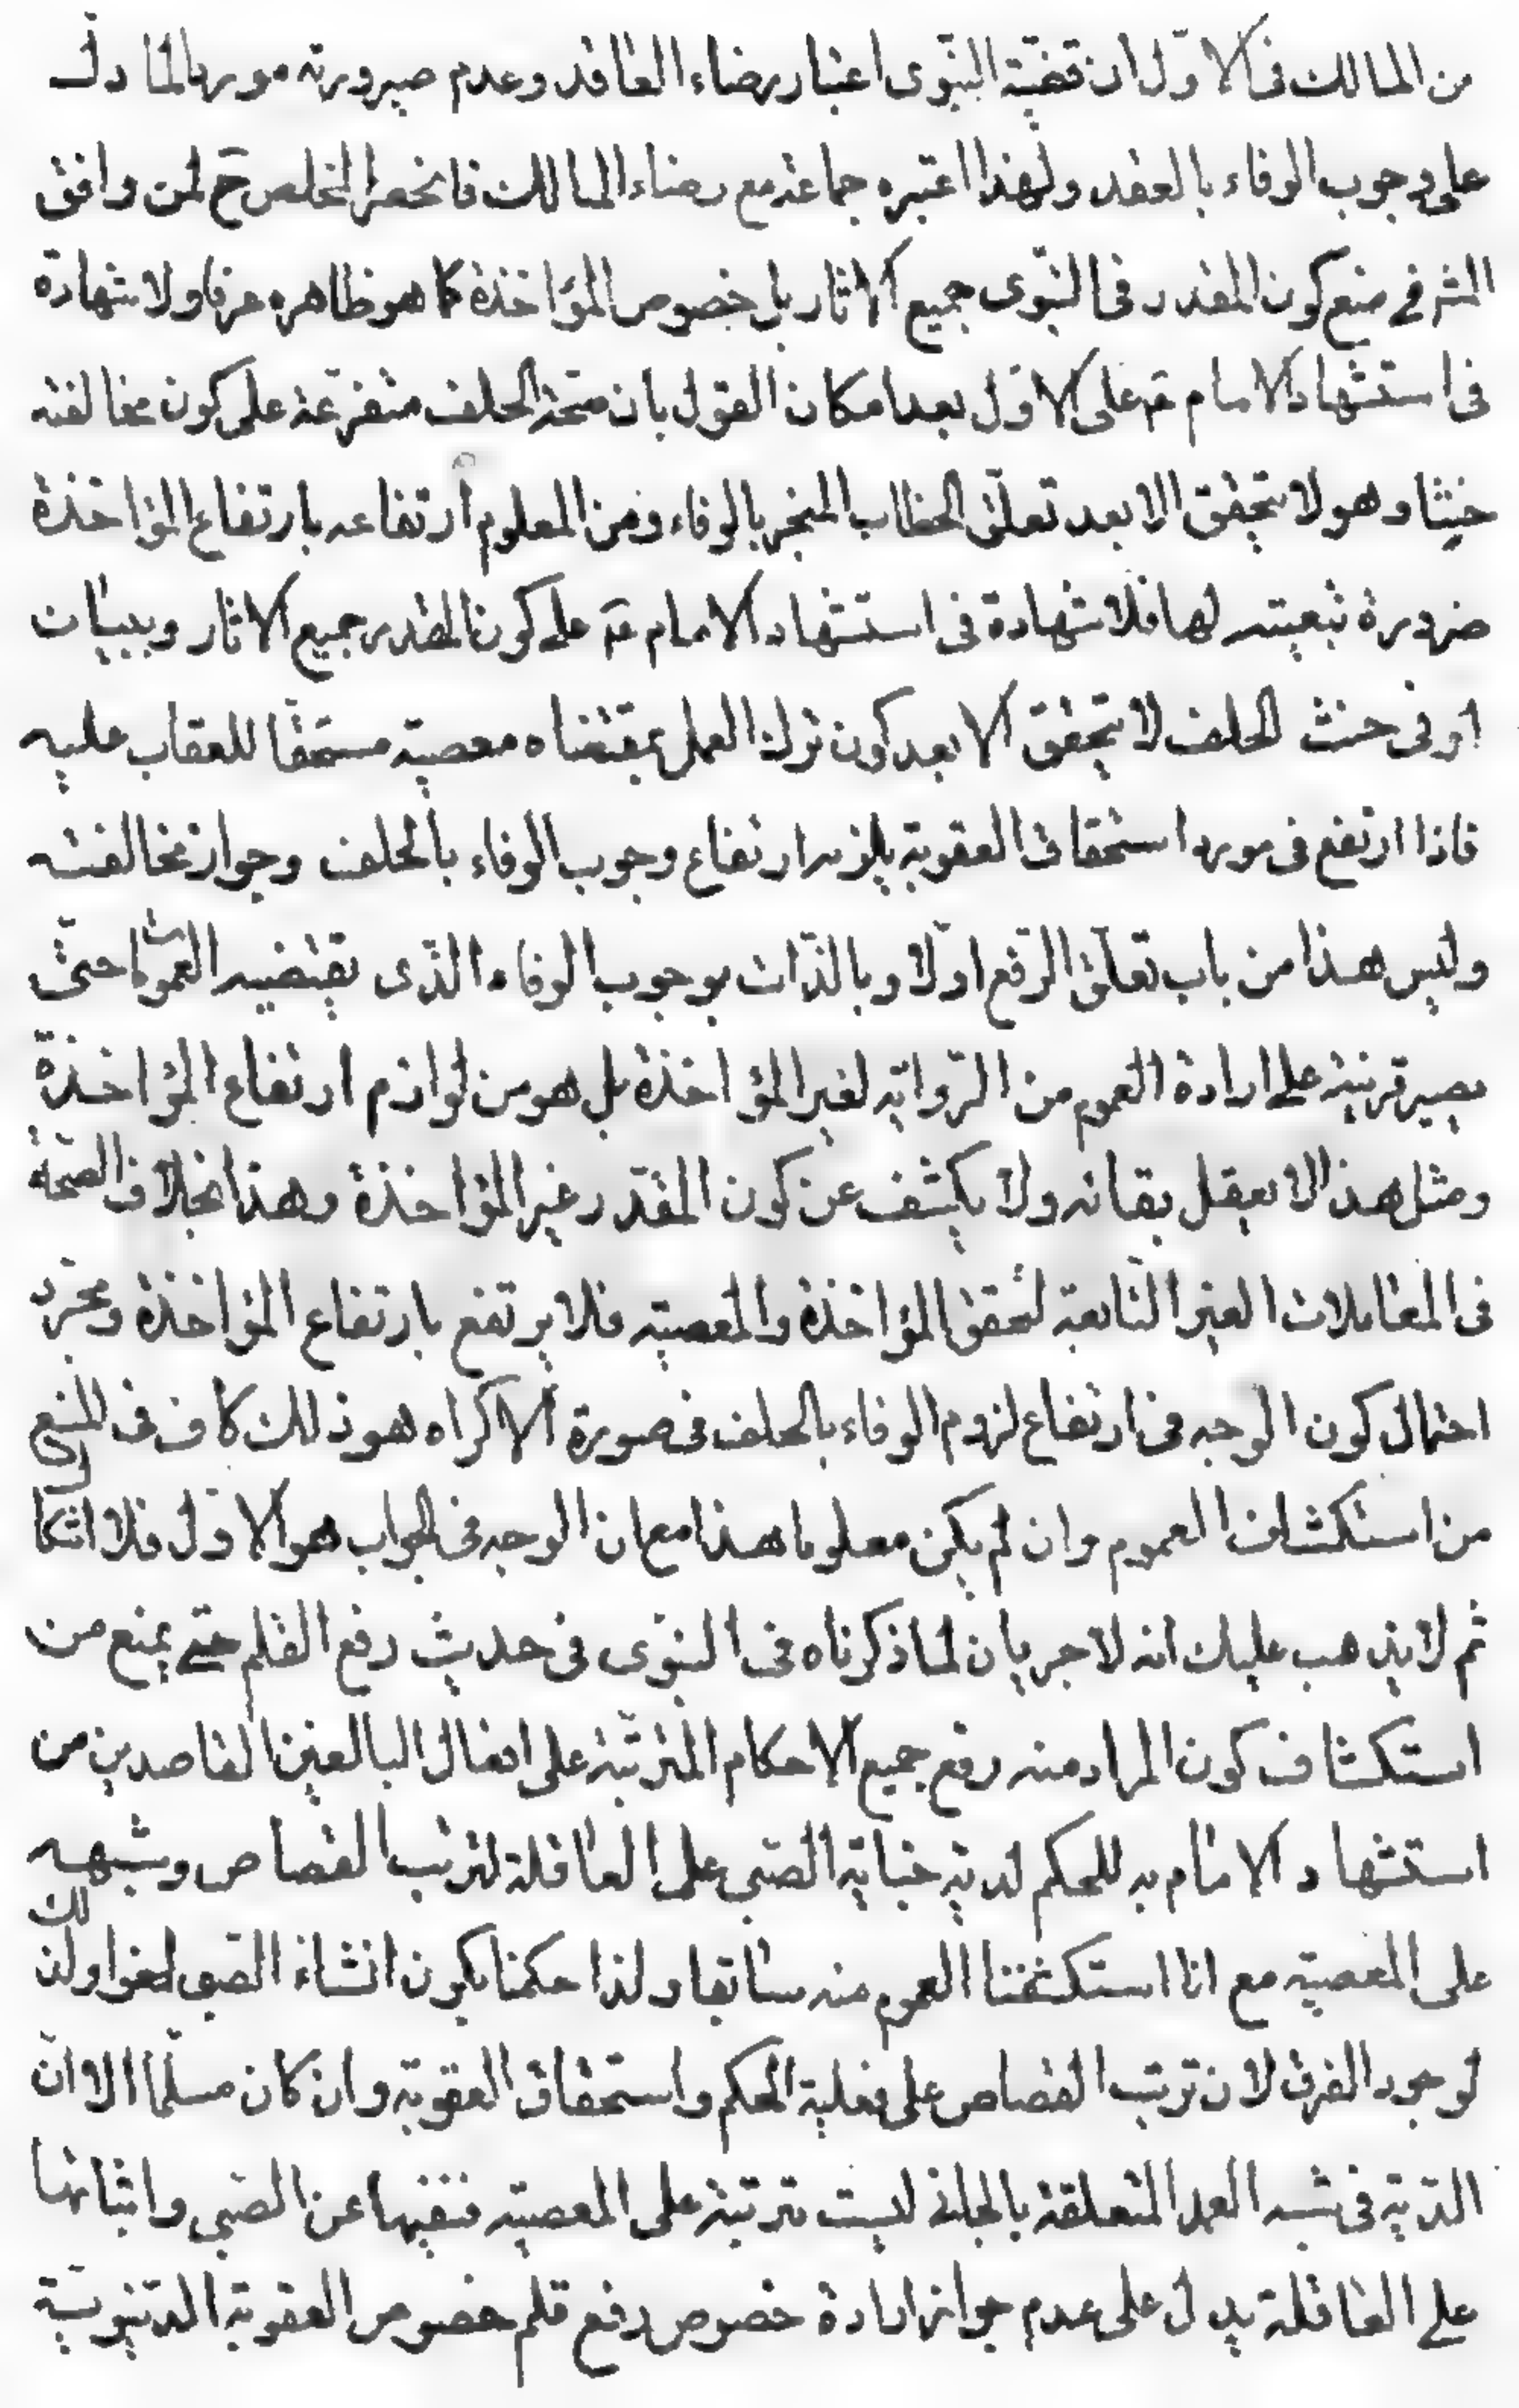 من المالك فى الاوّل ان قضيّة النبّوى اعتبار رضاء العاقد وعدم صيرورته موردا لما دلّ
على وجوب الوفاء بالعقد ولهذا اعتبره جماعة مع رضاء المالك فانحصر المخلص ح لمن وافق
المشهر فى منع كون المقدر فى النبّوى جميع الاثار بل خصوص المؤاخذة كما هو ظاهره عرفا ولا شهادة
فى استشهاد الامام ع على الاوّل بعد امكان القول بان صحة الحلف متفرعة على كون مخالفته
حنثا وهو لا يتحقق الا بعد تعلّق الخطاب المنجر بالوفاء ومن المعلوم ارتفاعه بارتفاع المؤاخذة
ضرورة تبعيته لها فلا شهادة فى استشهاد الامام ع على كون المقدر جميع الاثار وببيان
اوفى حنث الحلف لا يتحقق الا بعد كون ترك العمل بمقتضاه معصية مستحقا للعقاب عليه
فاذا ارتفع فى مورد استحقاق العقوبة يلزمه ارتفاع وجوب الوفاء بالحلف وجواز مخالفته
وليس هذا من باب تعلّق الرّفع اوّلا وبالذّات بوجوب الوفاء الذّى يقتضيه العمومات حتى
يصير قرينة على ارادة العموم من الرّواية لغير المؤاخذة بل هو من لوازم ارتفاع المؤاخذة
ومثل هذا لا يعقل بقائه ولا يكشف عن كون المقدّر غير المؤاخذة وهذا بخلاف الصّحة
فى المعاملات الغير التّابعة لتحقق المؤاخذة والمعصية فلا يرتفع بارتفاع المؤاخذة ومجرّد
احتمال كون الوجه فى ارتفاع لزوم الوفاء بالحلف فى صورة الاكراه هو ذلك كاف فى المنع
من استكشاف العموم وان لم يكن معلوما هذا مع ان الوجه فى الجواب هو الاوّل فلا اشكال
ثم لا يذهب عليك انه لا جريان لما ذكرناه فى النبوّى فى حديث رفع القلم حتى يمنع من
استكشاف كون المراد منه رفع جميع الاحكام المترتّبة على افعال البالغين القاصدين من
استشهاد الامام به للحكم لدية جناية الصّبى على العاقلة لترتب القصاص وشبهه
على المعصية مع انا استكشفنا العموم منه سابقا ولذا حكمنا بكون انشاء الصّبى لغوا وذلك
لوجود الفرق لان ترتب القصاص على فعلية الحكم واستحقاق العقوبة وان كان مسلّما الا انّ
الدّية فى شبه العمد المتعلقة بالجانى ليست مترتبة على المعصية فنفيها عن الصّبى واثباتها
على العاقلة يدل على عدم جواز ارادة خصوص رفع قلم خصوص العقوبة الدّنيويّة